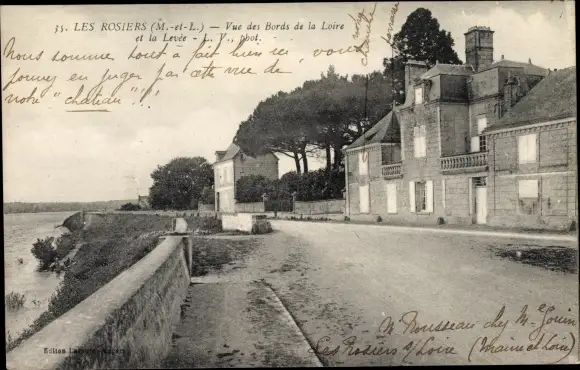 35. LES ROSIERS (M.-et-L.) — Vue des Bords de la Loire
et la Levée — L. V., phot.
Nous sommes tout à fait bien ici vous
en juger par cette vue de
notre "château"
M Rousseau chez M. Gouin
Les Rosiers s/ Loire (Maine et Loire)